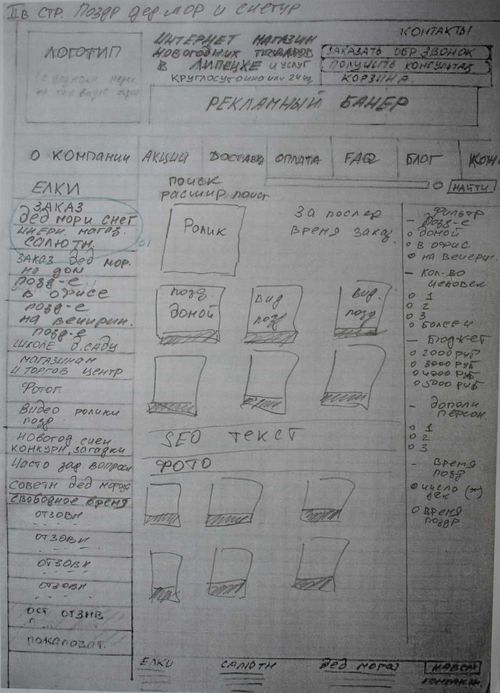 II в стр. Поздр дед мор и снегур
ЛОГОТИП
ИНТЕРНЕТ МАГАЗИН
НОВОГОДНИХ ТОВАРОВ
В ЛИПЕЦКЕ И УСЛУГ
КРУГЛОСУТОЧНО ИЛИ 24 ч
КОНТАКТЫ
ЗАКАЗАТЬ ОБР ЗВОНОК
ПОЛУЧИТЬ КОНСУЛЬТАЦ
КОРЗИНА
РЕКЛАМНЫЙ БАНЕР
О КОМПАНИИ
АКЦИИ
ДОСТАВКА
ОПЛАТА
FAQ
БЛОГ
КОН
ПОИСК
РАСШИР ПОИСК
НАЙТИ
ЕЛКИ
ЗАКАЗ
ДЕД МОР И СНЕГ
САЛЮТЫ
ЗАКАЗ ДЕД МОР.
НА ДОМ
ПОЗД-Е
В ОФИСЕ
ПОЗД-Е
НА ВЕЧЕРИН.
ПОЗД-Е
ШКОЛЕ Д.САДУ
МАГАЗИНАМ
И ТОРГОВ ЦЕНТР
ФОТОГ
ВИДЕО РОЛИКИ
ПОЗД
НОВОГОД СЦЕН
КОНКУРСЫ, ЗАГАДКИ
ЧАСТО ЗАД ВОПРОСЫ
СОВЕТЫ ДЕД МОРОЗА
СВОБОДНОЕ ВРЕМЯ
ОТЗОВЫ
ОТЗОВЫ
ОТЗОВЫ
ОТЗОВЫ
ОСТ ОТЗЫВ
ПОЖАЛОВАТ.
РОЛИК
ЗА ПОСЛЕД
ВРЕМЯ ЗАКАЗ.
ПОЗД
ДОМОЙ
ВИД
ПОЗД
ВИД.
ПОЗД
SEO ТЕКСТ
ФОТО
ФИЛЬТР
ПОЗД-Е
ДОМОЙ
В ОФИС
НА ВЕЧЕРИН.
- КОЛ-ВО
ЧЕЛОВЕК
1
2
3
БОЛЕЕ 4
- БЮДЖЕТ
2000 РУБ
3000 РУБ
4000 РУБ
5000 РУБ
- ДОПОЛН
ПЕРСОН.
1
2
3
- ВРЕМЯ
ПОЗД
ЧИСЛО
ДЕК
ВРЕМЯ
ПОЗДР
ЕЛКИ
САЛЮТЫ
ДЕД МОРОЗ